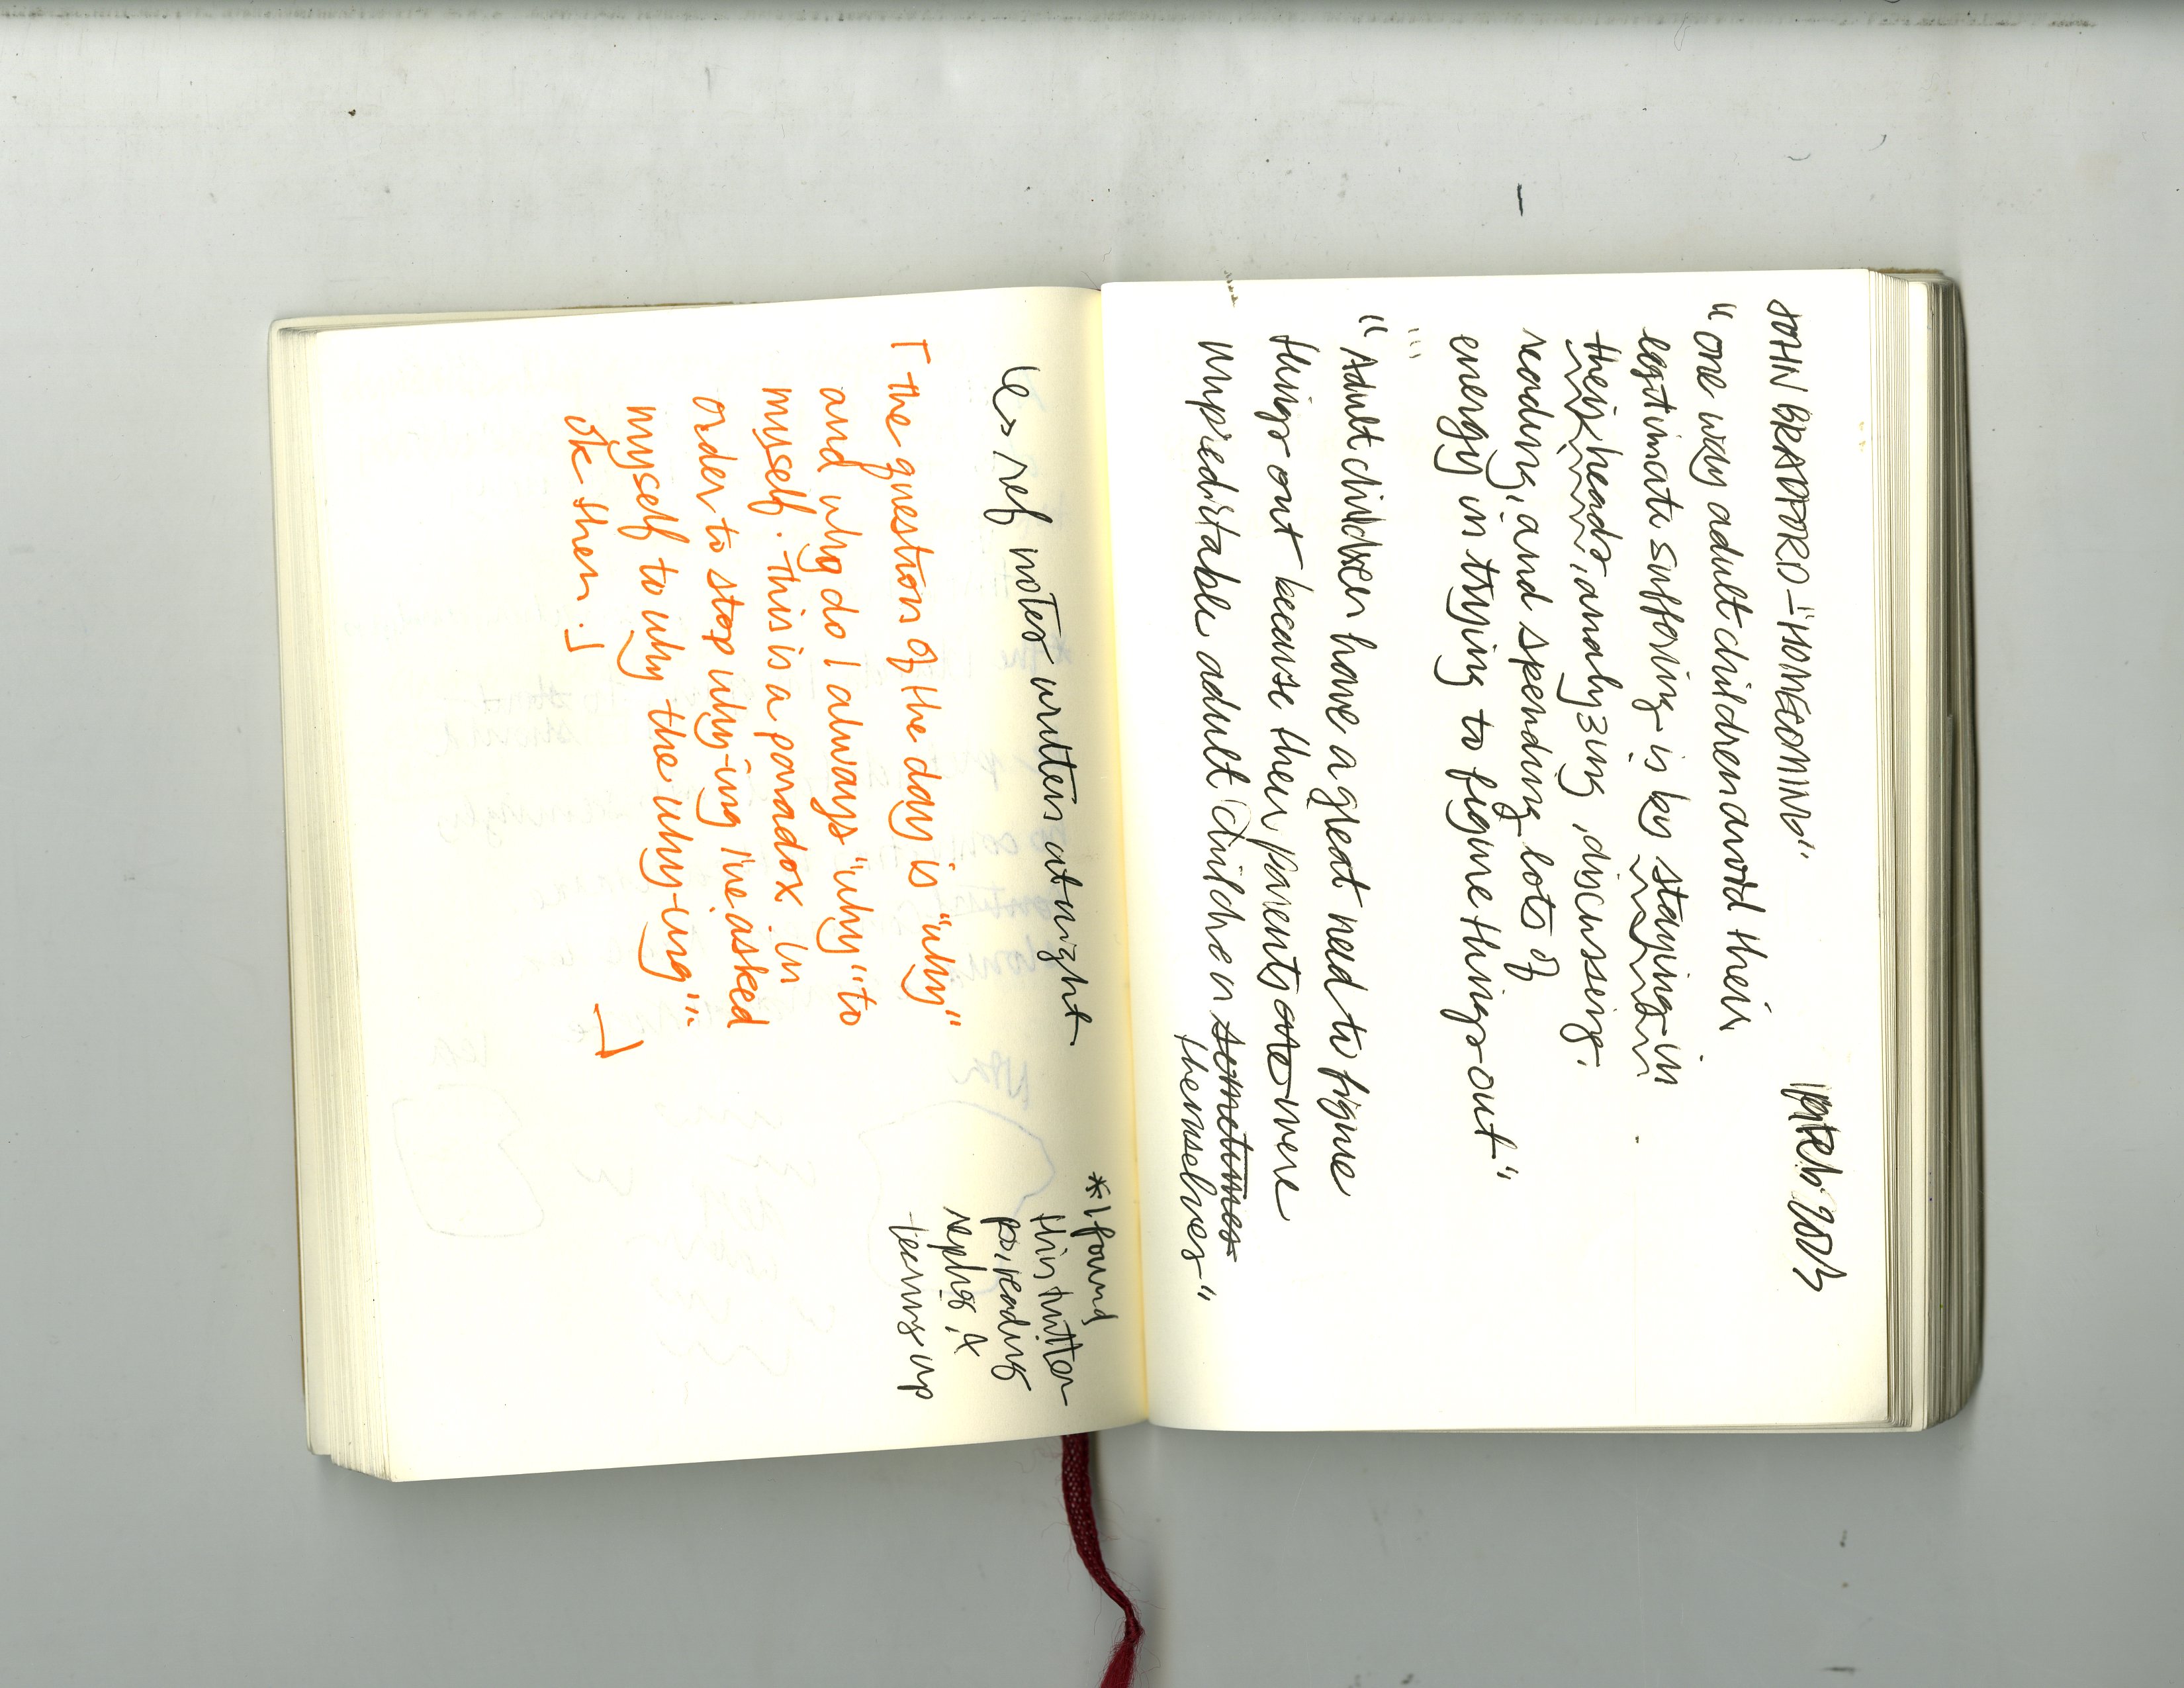 JOHN BRADFORD - "HOMECOMING"
March 2023
"one way adult children avoid their
legitimate suffering is by staying in
their heads, analyzing, discussing,
reading, and spending lots of
energy in trying to figure things out"
"Adult children have a great need to figure
things out because their parents are were
unpredictable adult children sometimes
themselves"
ref notes written at night
*I found
this twitter
reading
replies, it
teams up
[the question of the day is "why"
and why do I always "why" to
myself. this is a paradox. in
order to stop why-ing I've asked
myself to why the why-ing".
ok then.]